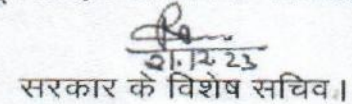 21.12.23
सरकार के विशेष सचिव।